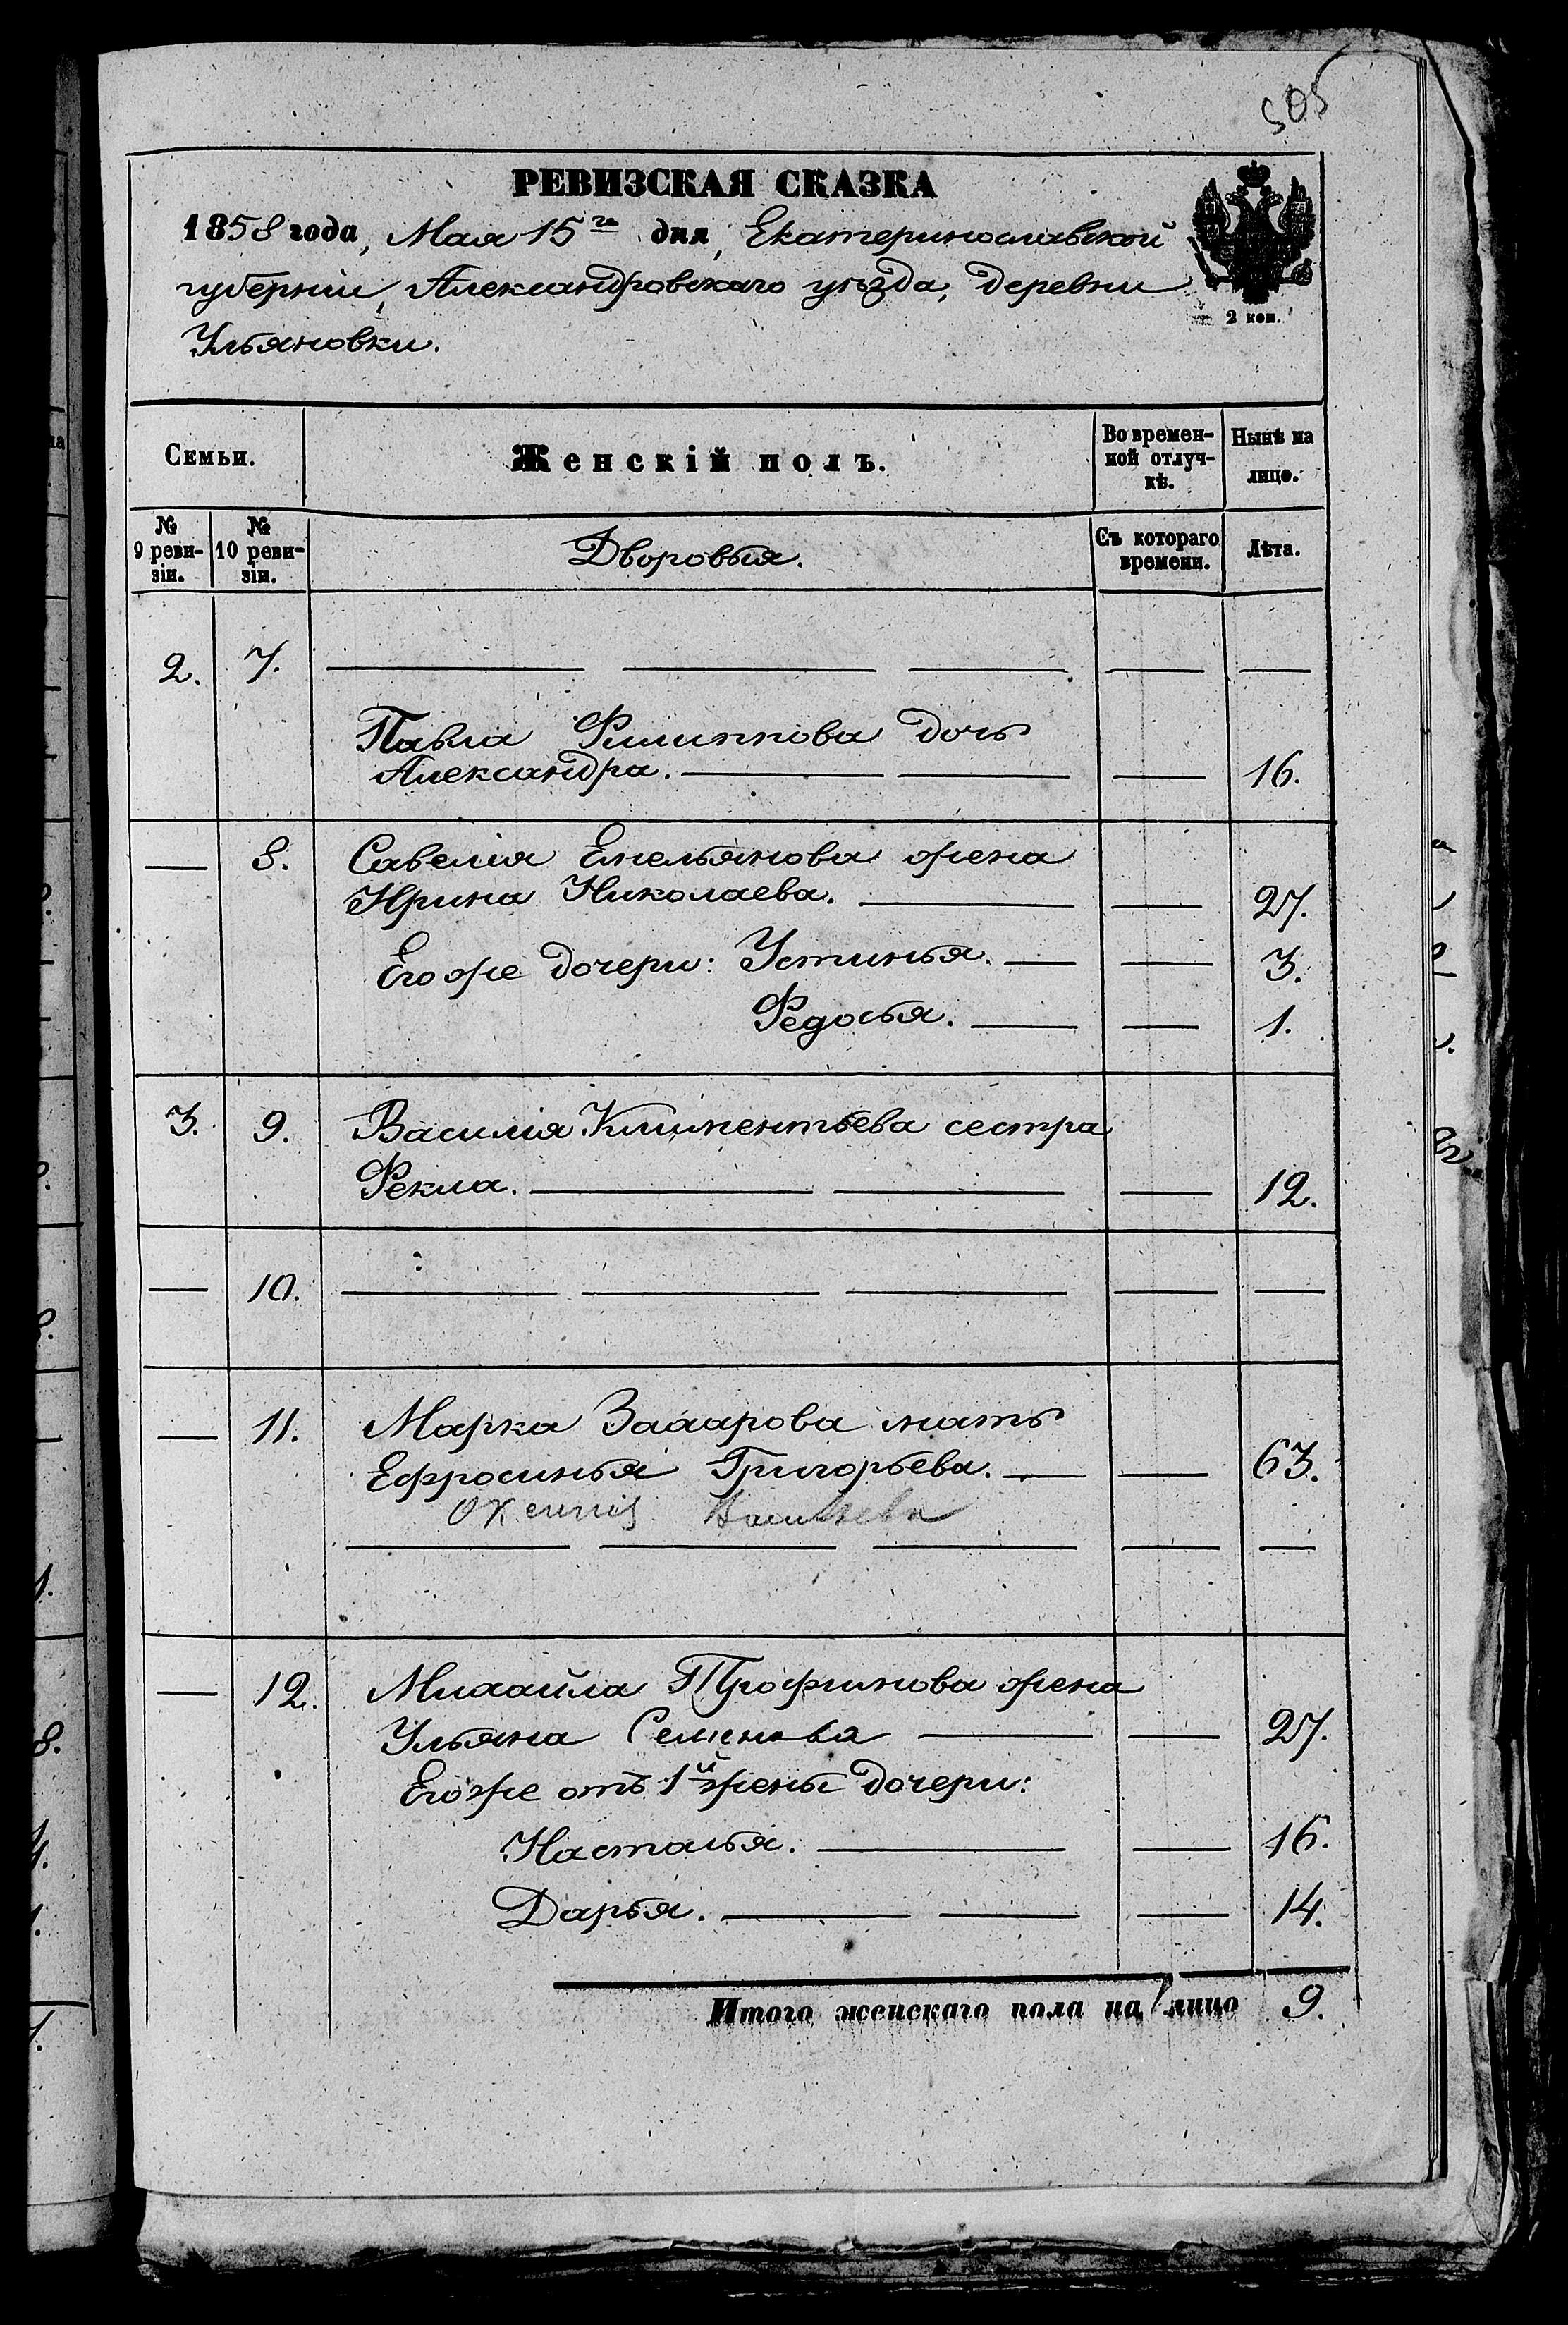 505
РЕВИЗСКАЯ СКАЗКА
1858 года, Мая 15го дня, Екатеринославской
губерніи, Александровскаго уѣзда, деревни
Ульяновки.
2 коп.
Семьи.
Женскій полъ.
Во времен-
ной отлуч-
кѣ.
Нынѣ на
лицо.
№
9 реви-
зіи.
№
10 реви-
зіи.
Дворовыя.
Съ котораго
времени.
Лѣта.
2. 7. — — — — —
Павла Филиппова дочь
Александра. — — — 16.
— 8. Савелія Емельянова жена
Ирина Николаева. — — 27.
Его же дочери: Устинья. — — 3.
Федосья. — — 1.
3. 9. Василія Климентьева сестра
Фекла. — — — 12.
— 10. — — — — —
— 11. Марка Захарова мать
Ефросинья Григорьева. — — 63.
— — — — —
— 12. Михайла Трофимова жена
Ульяна Семенова — — 27.
Его же отъ 1й жены дочери:
Настасья. — — 16.
Дарья. — — — 14.
Итого женскаго пола на лицо 9.